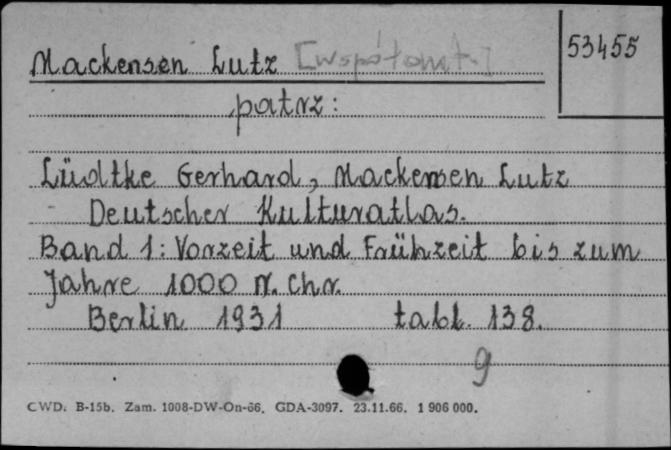 Mackensen Lutz [współaut.]
53455
patrz:
Lüdtke Gerhard, Mackensen Lutz
Deutscher Kulturatlas.
Band 1: Vorzeit und Frühzeit bis zum
Jahre 1000 n. Chr.
Berlin 1931 tabl. 138.
9
CWD. B-15b. Zam. 1008-DW-On-66. GDA-3097. 23.11.66. 1 906 000.